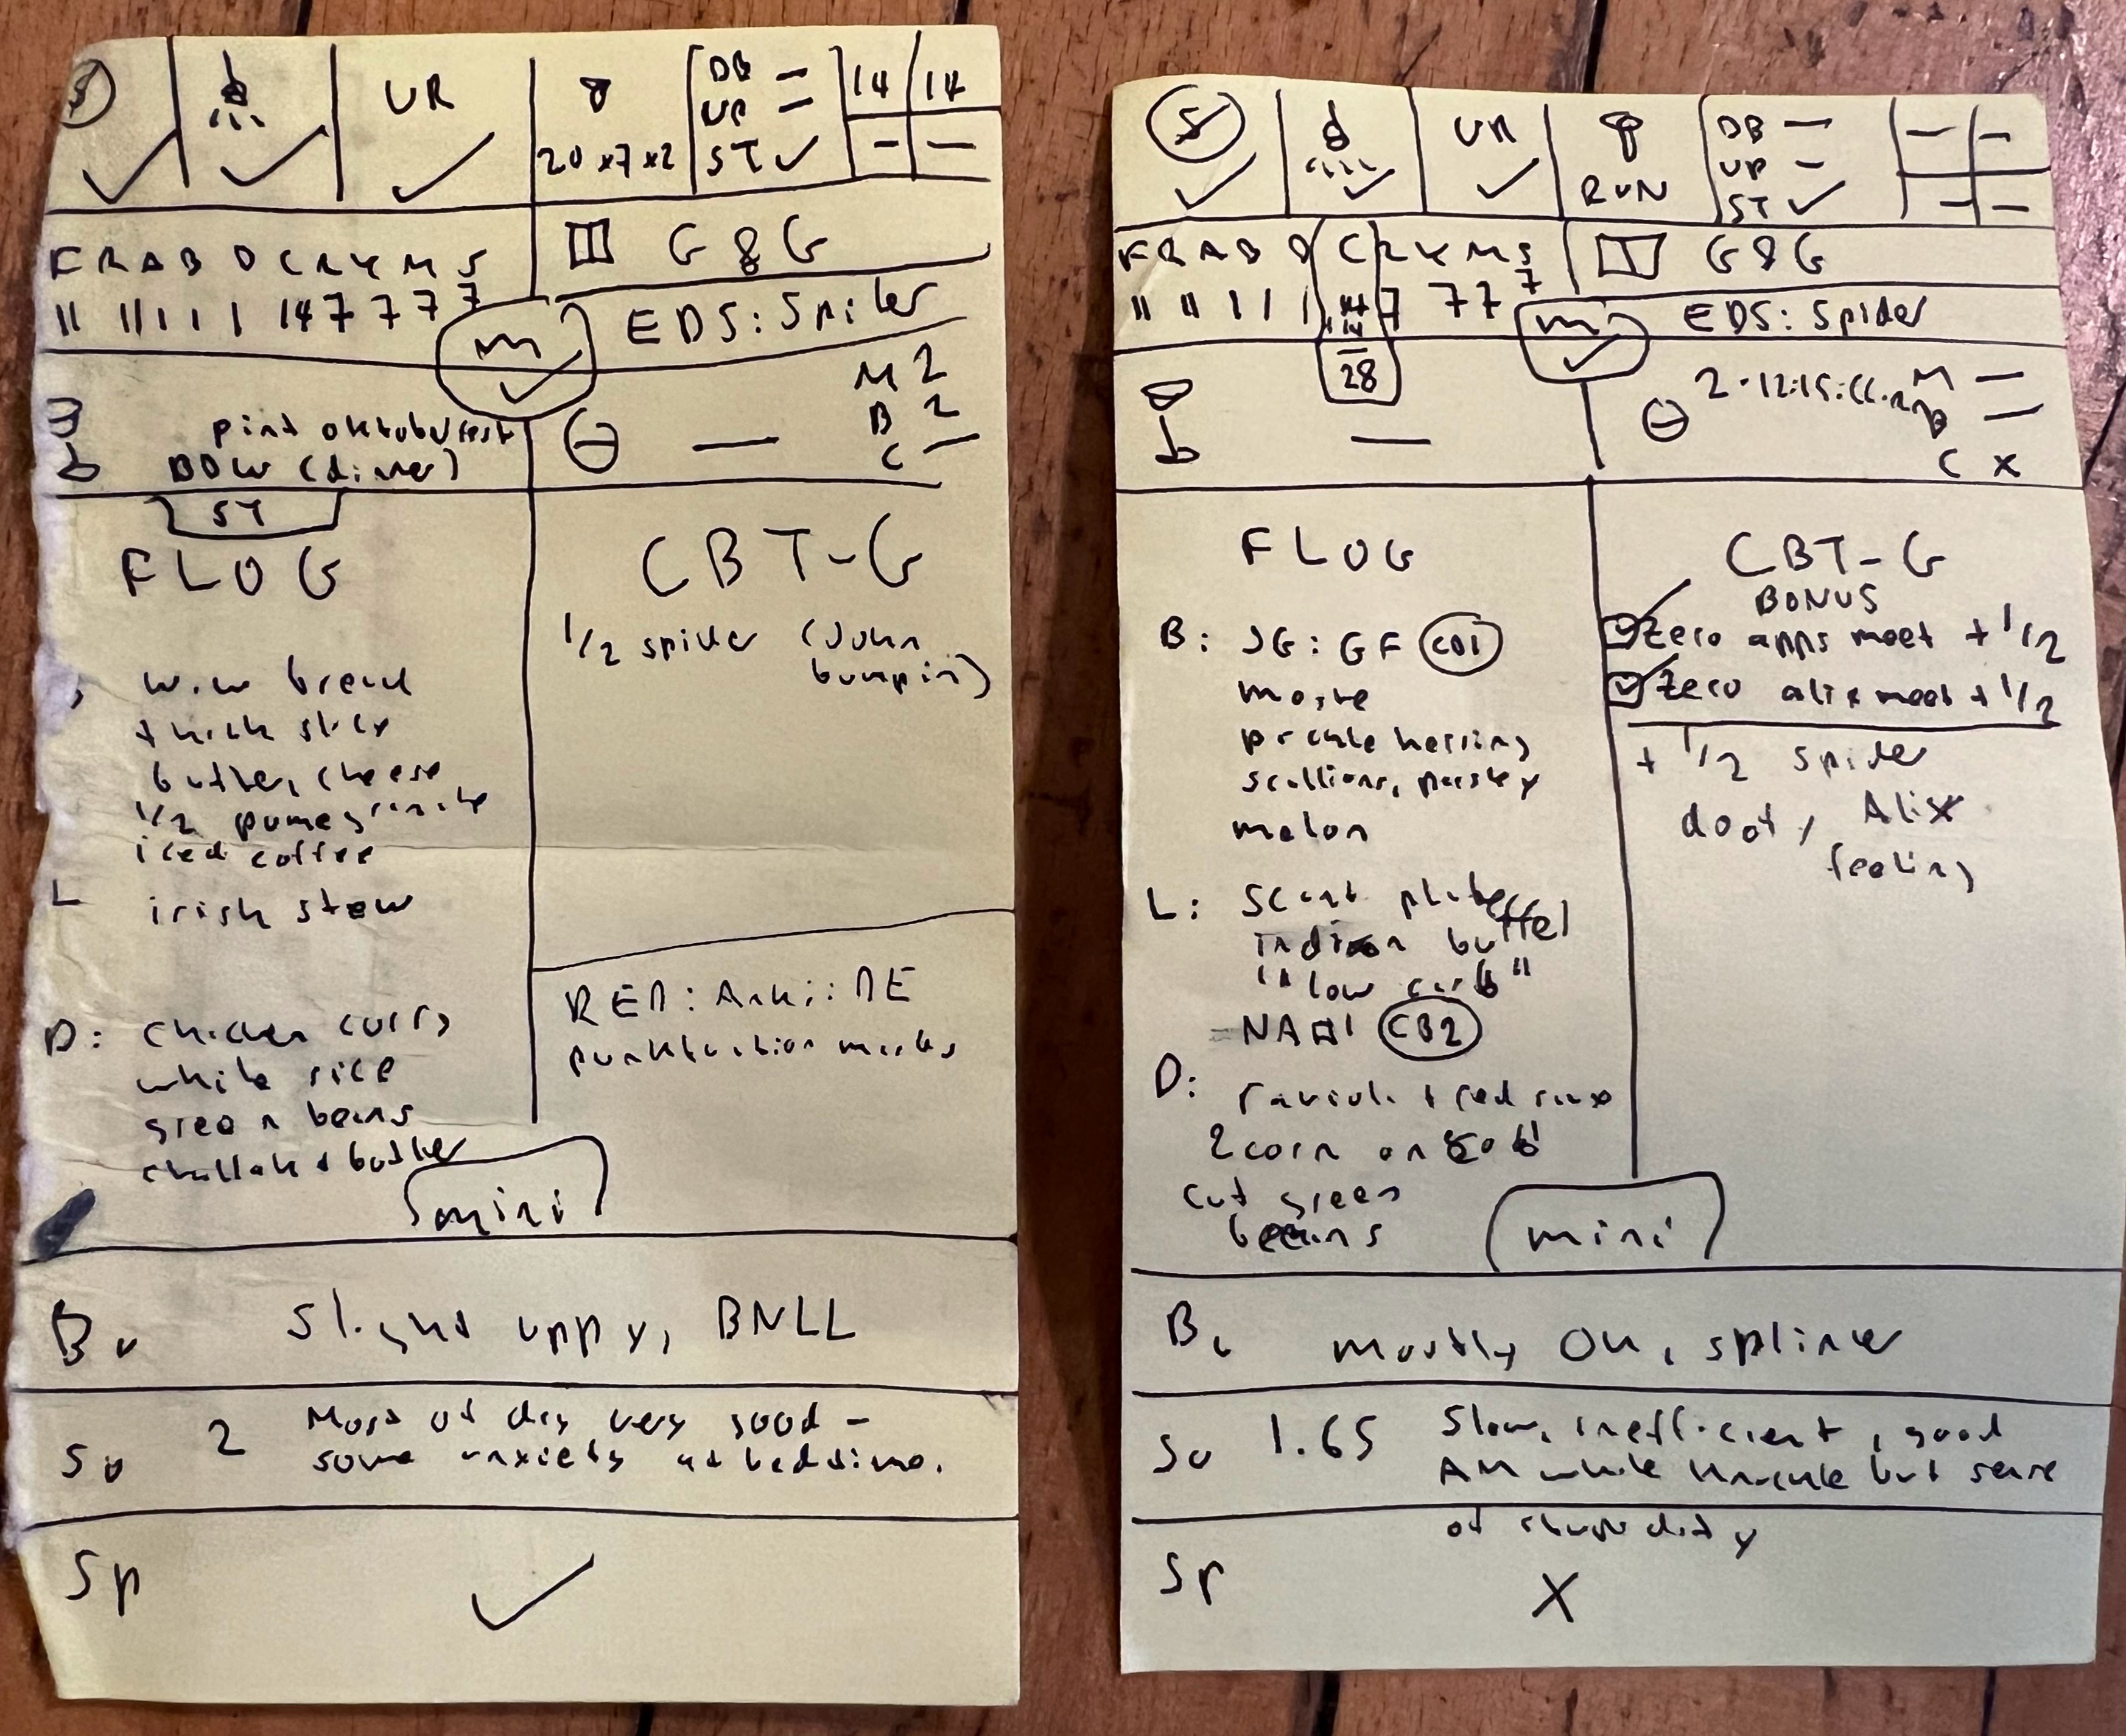 S
UR
20 x7 x2
DB —
UP —
ST ✓
14 14
— —
FRAB DCRYMS
11 11 1 1 1 14 7 7 7 7
G & G
m
EDS: Spider
pint oktoberfest
BDW (diner)
M 2
B 2
C —
ST
FLOG
w.w bread
thick slice
butter, cheese
1/2 pomegranate
iced coffee
L irish stew
D: chicken curry
white rice
green beans
challah + butter
mini
CBT-G
1/2 spider (John
bumpin)
RED: Anki: DE
punktuation marks
B
slight uppy, BNLL
2 Most of day very good -
some anxiety at bedtime.
Sp ✓
S
UR
RUN
DB —
UP —
ST ✓
— —
— —
FRAB D CRYMS
11 11 1 1 1 14 7 7 7 7
14
28
G & G
m
EDS: Spider
2 · 12:15
M —
B —
C X
FLOG
B: SG: GF
melon
L:
indian buffet
"low carb"
CB2
D: ravioli + red
2 corn on cob
cut green
beans
mini
CBT-G
BONUS
Zero apps meet + 1/2
Zero alix meet + 1/2
+ 1/2 spider
Alix
feeling
B
mostly OK,
1.65 Slow, inefficient, good
AM while but sense
of
Sp X